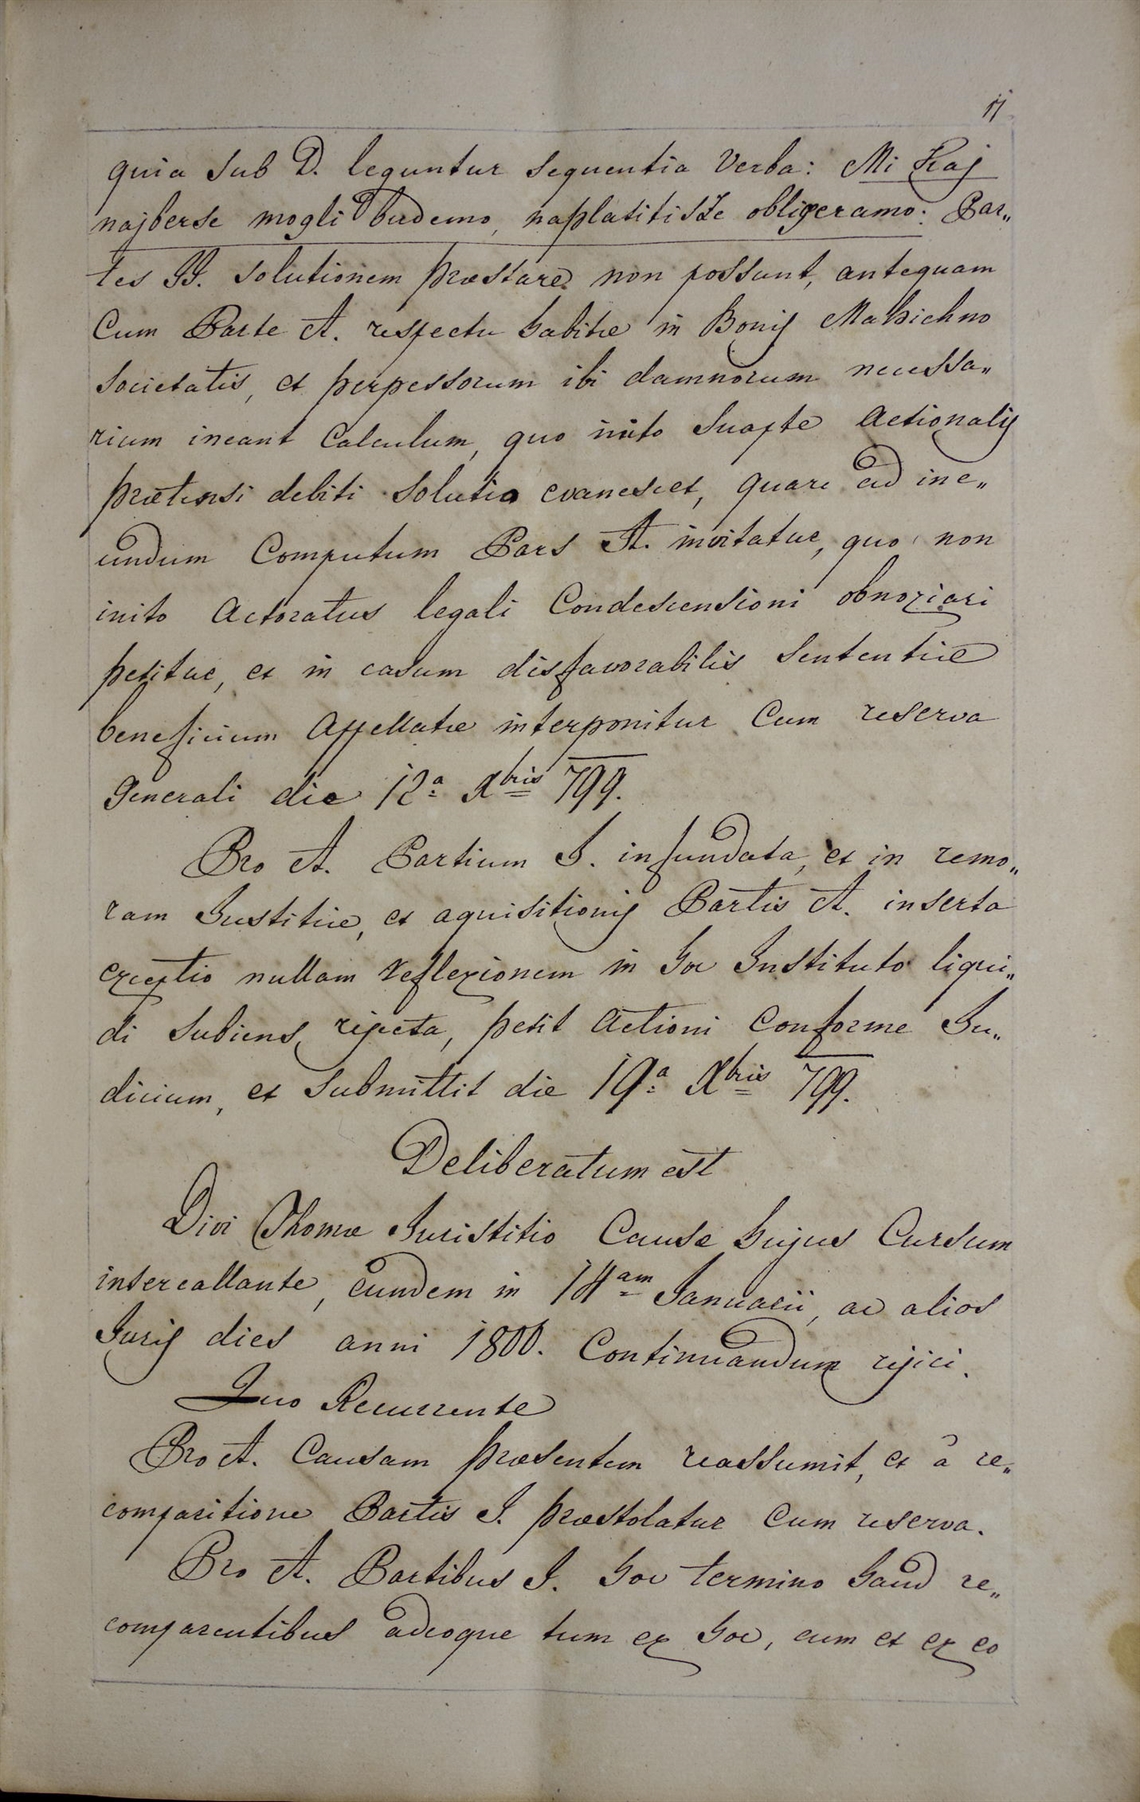 11
quia sub D. leguntur sequentia Verba: Mi kaj
najberse mogli budemo, naplatitisze obligeramo: Par„
tes JJ. solutionem præstare non possunt, antequam
Cum Parte A. respectu habitæ in Bonis
societatis, et perpessorum ibi damnorum necessa„
rium ineant Calculum, quo inito suapte Actionalis
prætensi debiti solutio evanescet, quare ad ine„
undum Computum Pars A. invitatur, quo non
inito Actoratus legali Condescensioni obnoxiari
petitur, et in casum disfavorabilis sententiæ
beneficium Appellatæ interponitur Cum reserva
generali die 12ª Xbris 799.
Pro A. Partium J. infundata, et in remo„
ram Justitiæ, et aquisitionis Partis A. inserta
exceptio nullam reflexionem in hoc Instituto liqui„
di subiens, rejecta, petit Actioni Conforme Ju„
dicium, et submittit die 19ª Xbris 799.
Deliberatum est
Divi Thomæ Juristitio Causæ hujus Cursum
intercallante, eundem in 14am Januarii, ac alios
Juris dies anni 1800. Continuandum rejici.
Quo Recurrente
Pro A. Causam præsentem reassumit, et à re„
comparitione Partis J. præstolatur Cum reserva.
Pro A. Partibus J. hoc termino haud re„
comparentibus adeoque tum ex hoc, cum et ex eo